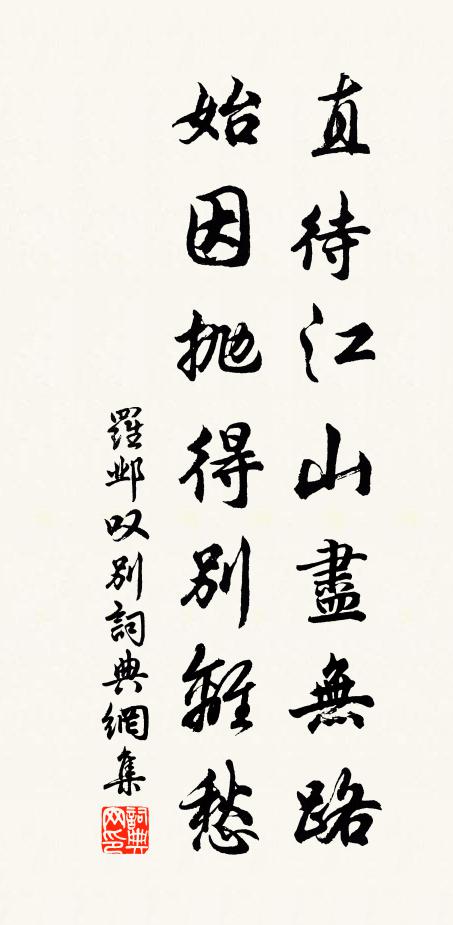 直待江山盡無路
始因拋得別離愁
羅鄴叹別詞典網集
詞典网印